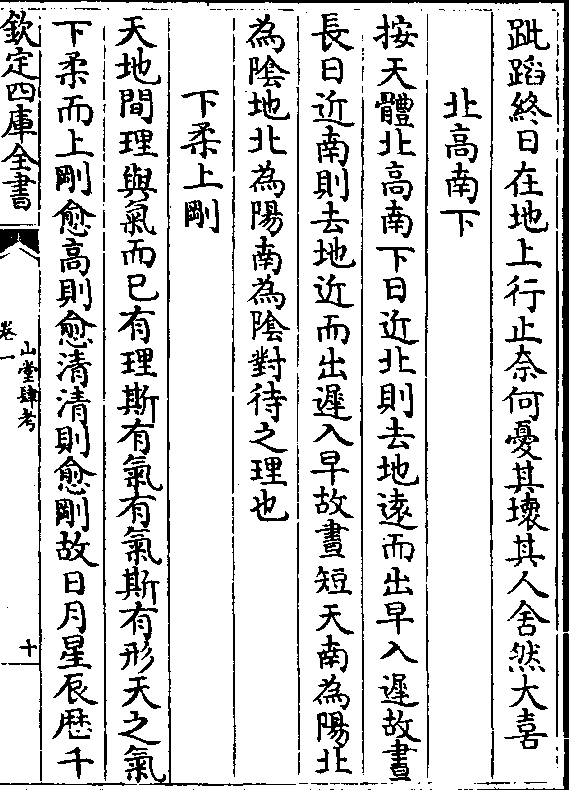 跐蹈終日在地上行止奈何憂其壞其人舍然大喜
北高南下
按天體北高南下日近北則去地逺而出早入遲故晝
長日近南則去地近而出遲入早故晝短天南為陽北
為陰地北為陽南為陰對待之理也
下柔上剛
天地間理與氣而已有理斯有氣有氣斯有形天之氣
下柔而上剛愈高則愈清清則愈剛故日月星辰歴千
欽定四庫全書
山堂肆考
卷一
十